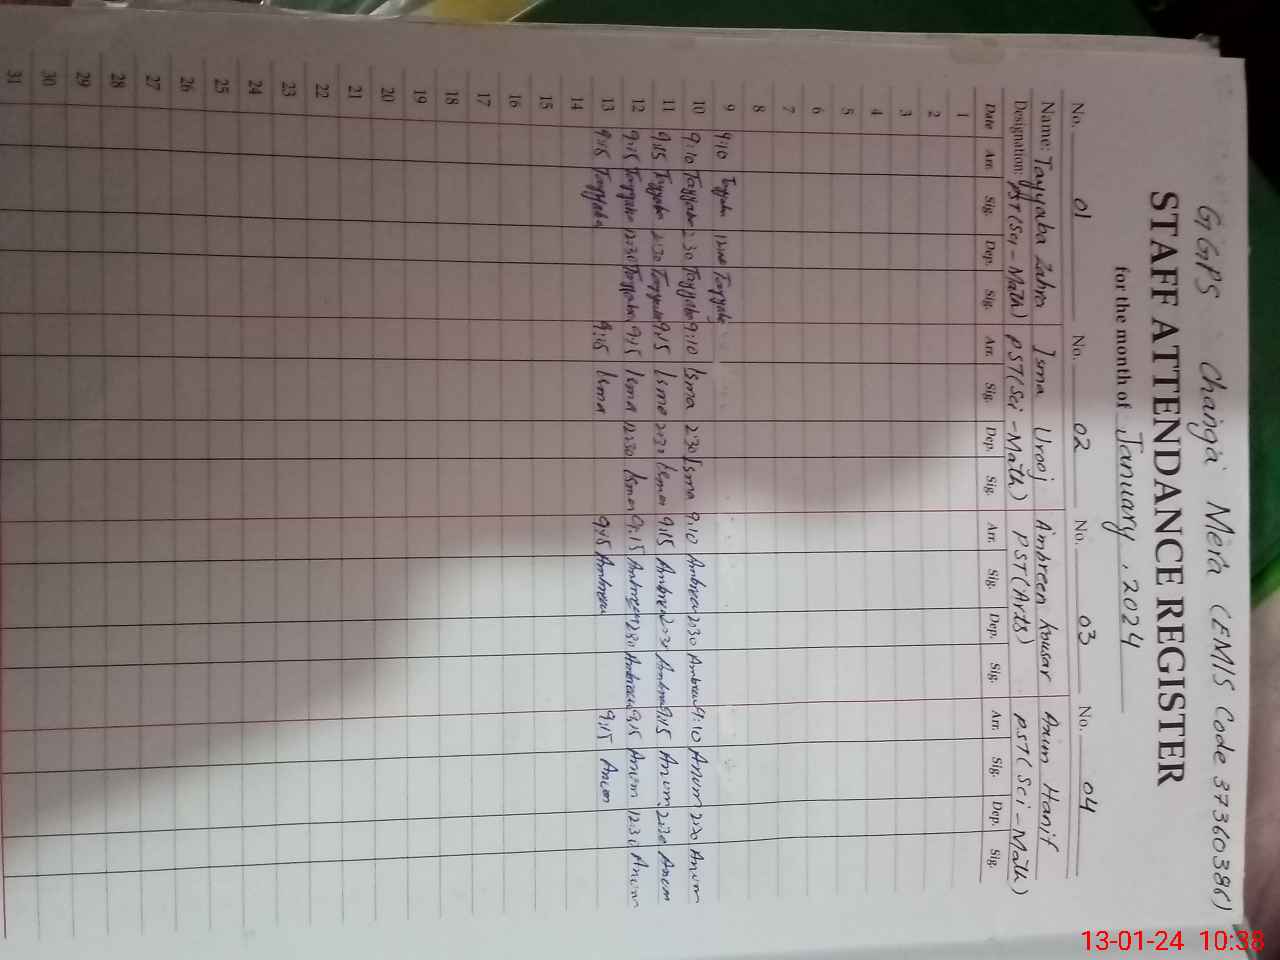 GGPS Changa Mera (EMIS Code 37360386)
STAFF ATTENDANCE REGISTER
for the month of January, 2024
No. 01 No. 02 No. 03 No. 04
Name: Tayyaba Zahra Isma Urooj Ambreen kousar Anum Hanif
Designation: PST(Sci-Math) PST(Sci-Math) PST(Arts) PST(Sci-Math)
Date Arr. Sig. Dep. Sig. Arr. Sig. Dep. Sig. Arr. Sig. Dep. Sig. Arr. Sig. Dep. Sig.
1
2
3
4
5
6
7
8
9 9:10 Tayyaba Tayyaba
10 9:10 Tayyaba 2:30 Tayyaba 9:10 Isma 2:30 Isma 9:10 Ambreen 2:30 Ambreen 9:10 Anum 2:30 Anum
11 9:15 Tayyaba 2:30 Tayyaba 9:15 Isma 2:30 Isma 9:15 Ambreen 2:30 Ambreen 9:15 Anum 2:30 Anum
12 9:15 Tayyaba 12:30 Tayyaba 9:15 Isma 12:30 Isma 9:15 Ambreen 12:30 Ambreen 9:15 Anum 12:30 Anum
13 9:15 Tayyaba 9:15 Isma 9:15 Ambreen 9:15 Anum
14
15
16
17
18
19
20
21
22
23
24
25
26
27
28
29
30
31
13-01-24 10:38